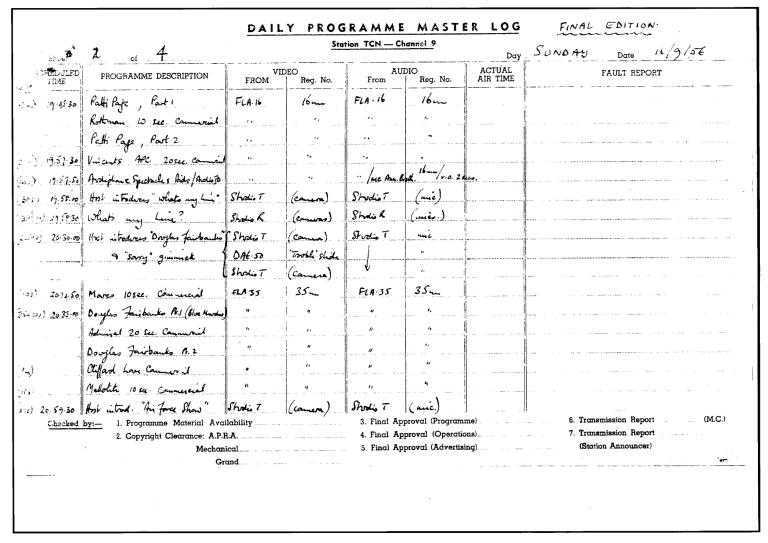 DAILY PROGRAMME MASTER LOG FINAL EDITION.
Station TCN — Channel 9
2 of 4 Day SUNDAY Date 16/9/56
SCHEDULED TIME PROGRAMME DESCRIPTION VIDEO FROM Reg. No. AUDIO From Reg. No. ACTUAL AIR TIME FAULT REPORT
19.45.30 Patti Page, Part 1 FLA.16 16mm FLA.16 16mm
Rothman 10 sec. Commercial " " " "
Patti Page, Part 2 " " " "
19.57.30 Vincents APC 20 sec. Commercial " " " "
19.57.50 Audiphone Spectacles Aids/Audio " " " / rec Ann. Booth 16mm/v.o. 2 secs.
19.58.00 Host introduces "What's my Line" Studio T (camera) Studio T (mic)
19.58.30 What's my Line? Studio R (cameras) Studio R (mics.)
20.30.00 Host introduces "Douglas Fairbanks" Studio T (camera) Studio T mic
& "sorry" gimmick DAF.50 "Trouble" slide "
Studio T (camera) "
Mares 10 sec. Commercial FLA 35 35mm FLA.35 35mm
Douglas Fairbanks Pt.1 " " " "
Admiral 20 sec. Commercial " " " "
Douglas Fairbanks Pt. 2 " " " "
Clifford Love Commercial " " " "
10 sec. Commercial " " " "
20.59.30 Host introd. "Air Force Show" Studio T (camera) Studio T (mic.)
Checked by:— 1. Programme Material Availability 3. Final Approval (Programme) 6. Transmission Report (M.C.)
2. Copyright Clearance: A.P.R.A. 4. Final Approval (Operations) 7. Transmission Report
Mechanical 5. Final Approval (Advertising) (Station Announcer)
Grand